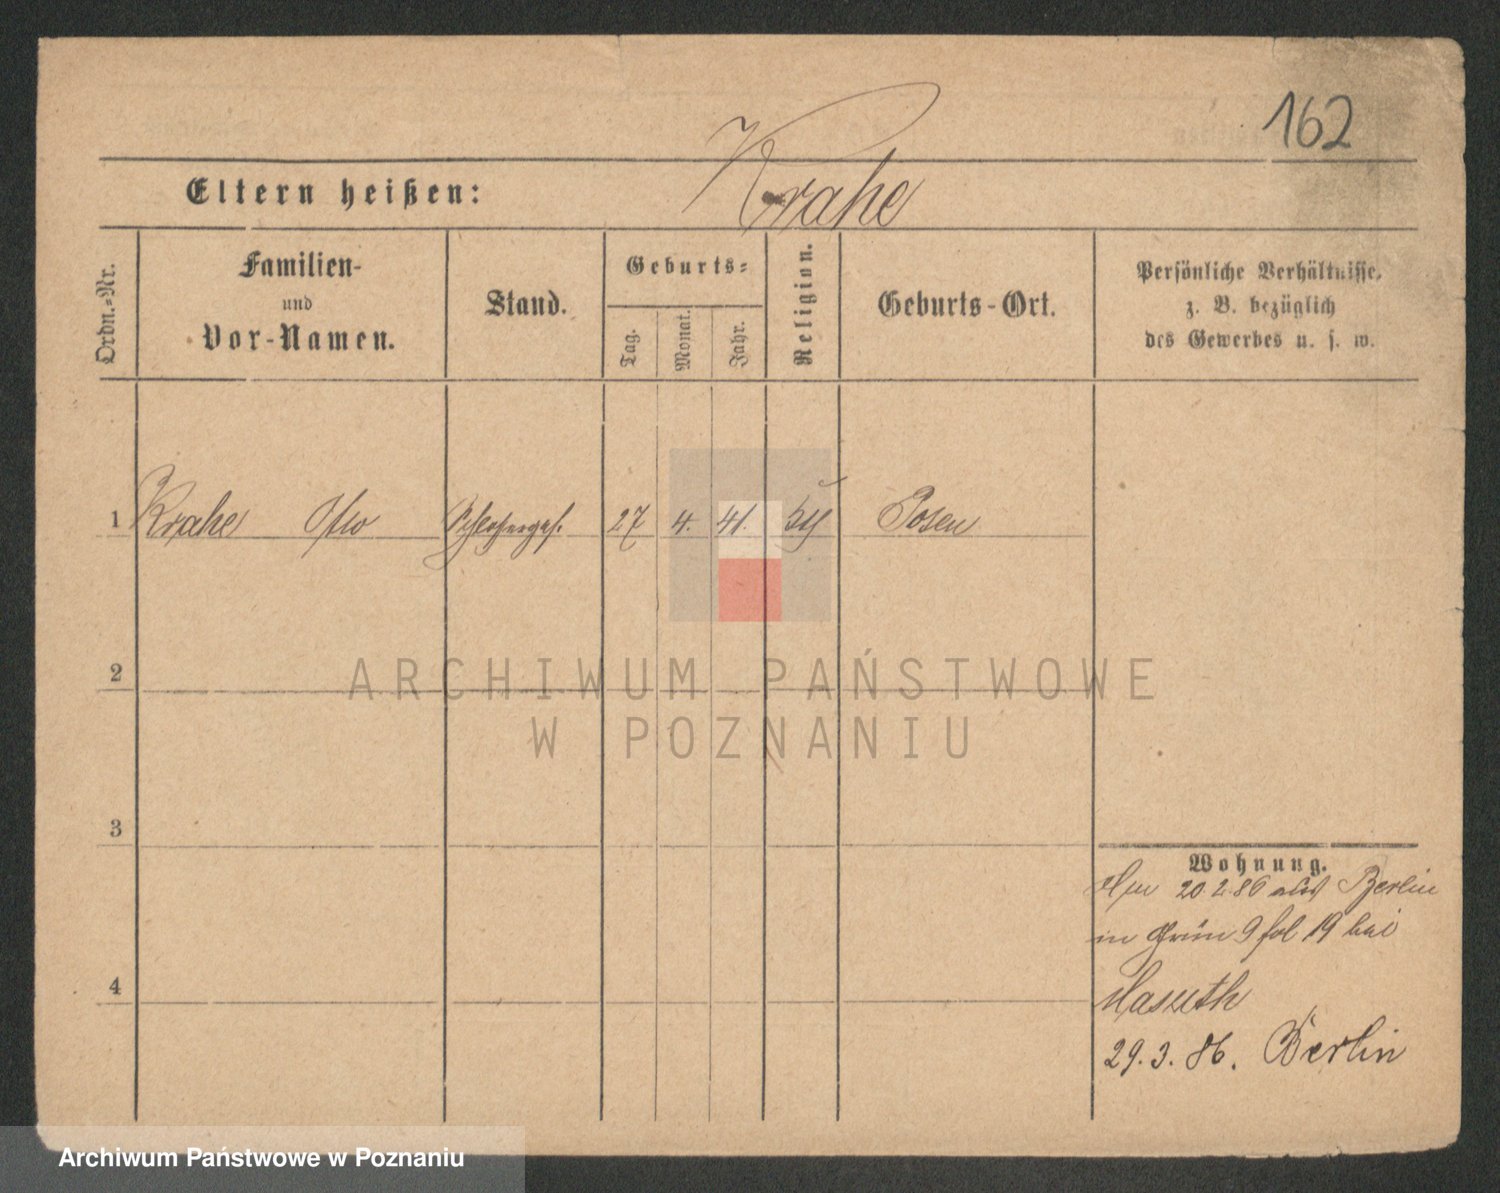 162
Krahe
Eltern heißen:
Ordn.-Nr.
Familien-
und
Vor-Namen.
Stand.
Geburts-
Tag.
Monat.
Jahr.
Religion.
Geburts-Ort.
Persönliche Verhältnisse,
z. B. bezüglich
des Gewerbes u. s. w.
1 Krahe Otto Schlosserges. 27 4. 41. Posen
2
ARCHIWUM PAŃSTWOWE
W POZNANIU
3
4
Wohnung.
20.2.86 Berlin
in Grün 9 fol 19 bei
Masuth
29.3.86. Berlin
Archiwum Państwowe w Poznaniu